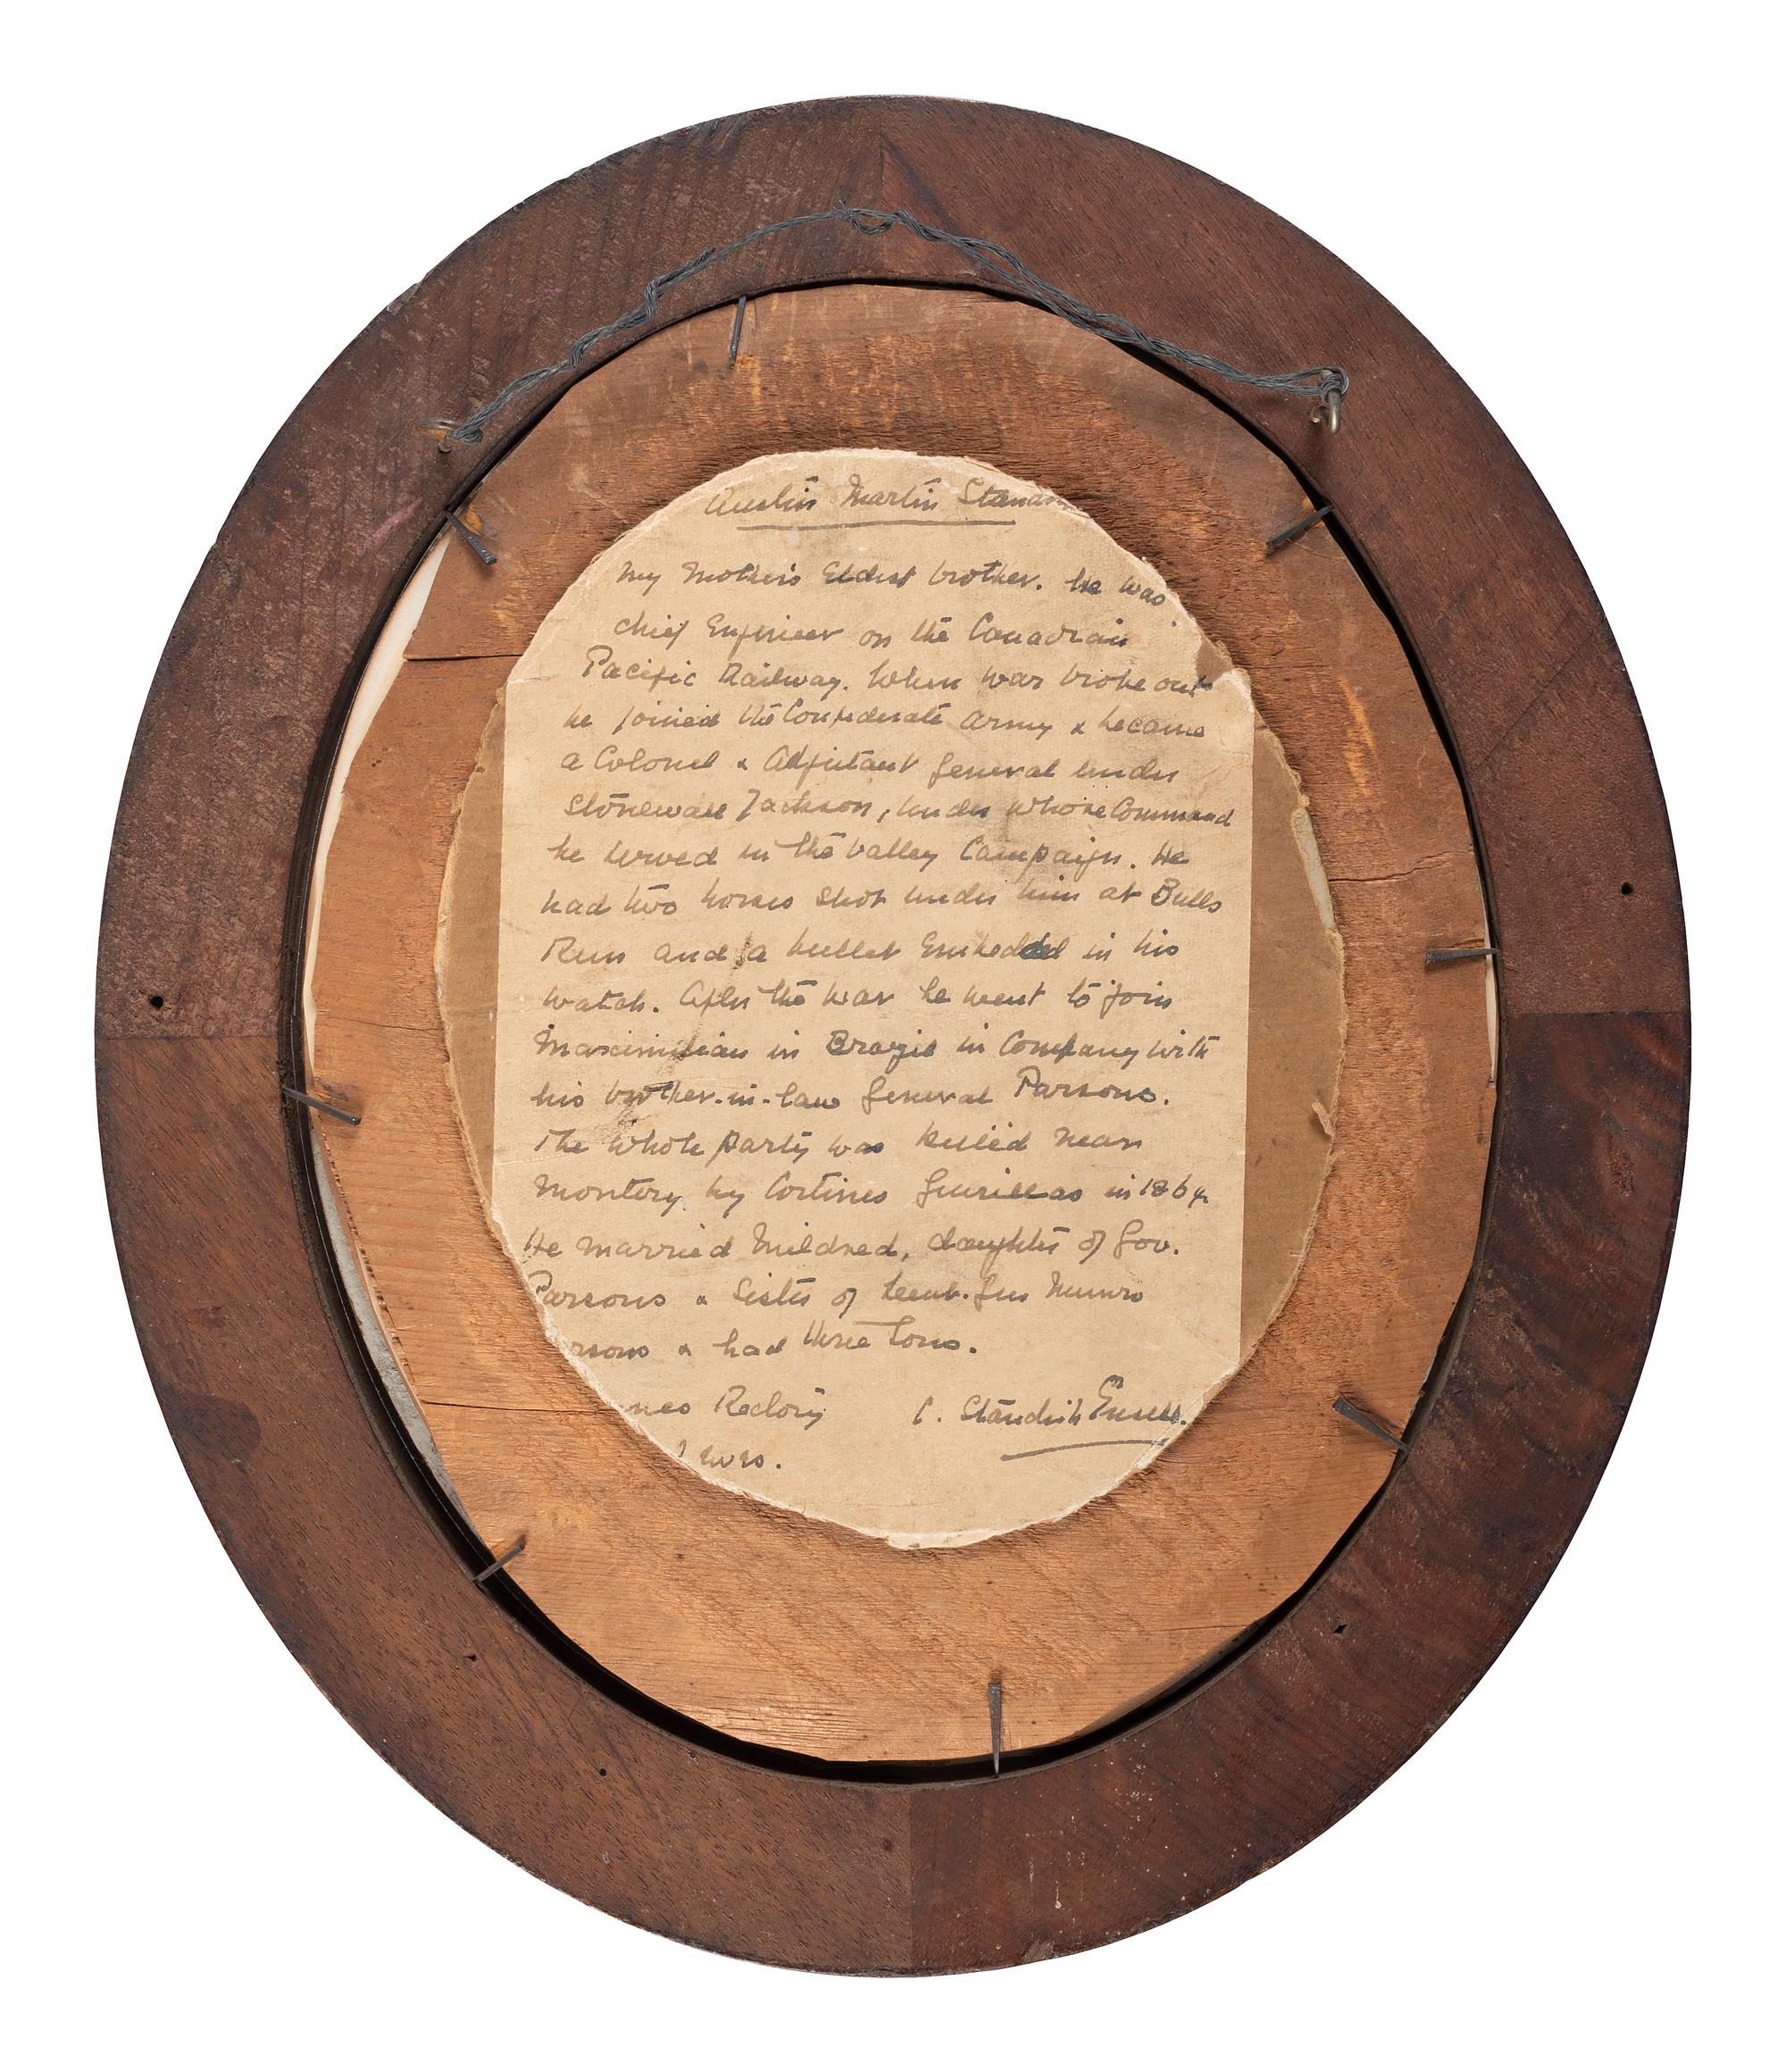 Austin Martin Standi
My Mother's Eldest brother. He was
chief Engineer on the Canadian
Pacific Railway. When war broke out
he joined the Confederate army & became
a Colonel & Adjutant General under
Stonewall Jackson, under whose Command
he served in the Valley Campaign. He
had two horses shot under him at Bulls
Run and a bullet Embedded in his
watch. After the war he went to join
Maximilian in Brazil in Company with
his brother-in-law General Parsons.
The whole party was killed near
Montery by Cortines Guirillas in 1864
He married Mildred, daughter of Gov.
Parsons & Sister of Lieut. Gen Munro
rsons & had three sons.
mes Rectory C. Standish